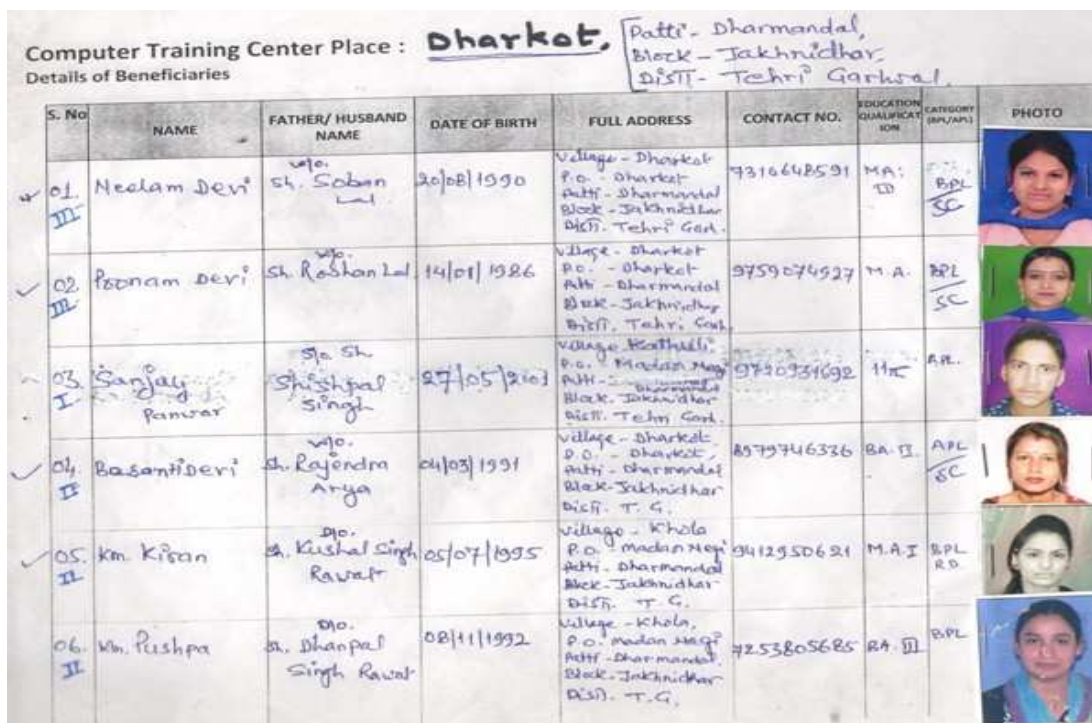 Computer Training Center Place : Dharkot,
Patti- Dharmandal,
Block- Jakhnidhar
Distt- Tehri Garhwal
Details of Beneficiaries
S. No NAME FATHER/ HUSBAND NAME DATE OF BIRTH FULL ADDRESS CONTACT NO. EDUCATION QUALIFICATION CATEGORY (BPL/APL) PHOTO
01. III Neelam Devi w/o. Sh. Soban Lal 20/08/1990
Village - Dharkot
P.O. - Dharkot
Patti - Dharmandal
Block - Jakhnidhar
Distt. Tehri Garh.
7310648591 MA: BPL SC
02. III Poonam Devi w/o. Sh. Roshan Lal 14/01/1986
Village - Dharkot
P.O. - Dharkot
Patti - Dharmandal
Block - Jakhnidhar
Distt. Tehri Garh.
9759074927 M.A. BPL SC
03. I Sanjay Panwar S/o Sh. Shishpal Singh 27/05/2001
Village
P.O. Madan Negi
Patti - Dharmandal
Block. Jakhnidhar
Distt. Tehri Garh.
9720931692
04. II Basanti Devi w/o. Sh. Rajendra Arya 04/03/1991
Village - Dharkot.
P.O. - Dharkot,
Patti - Dharmandal
Block - Jakhnidhar
Distt. T. G.
8979746336 BA. II. APL SC
05. II Km. Kiran D/o. Sh. Kushal Singh Rawat 05/07/1995
Village - Khola
P.O. - Madan Negi
Patti - Dharmandal
Block - Jakhnidhar
Distt. T. G.
9412950621 M.A. I BPL
06. II Km. Pushpa D/o. Sh. Dhanpal Singh Rawat 08/11/1992
Village - Khola,
P.O. Madan Negi
Patti - Dharmandal.
Block - Jakhnidhar
Distt. T. G.
7253805685 BA. III BPL